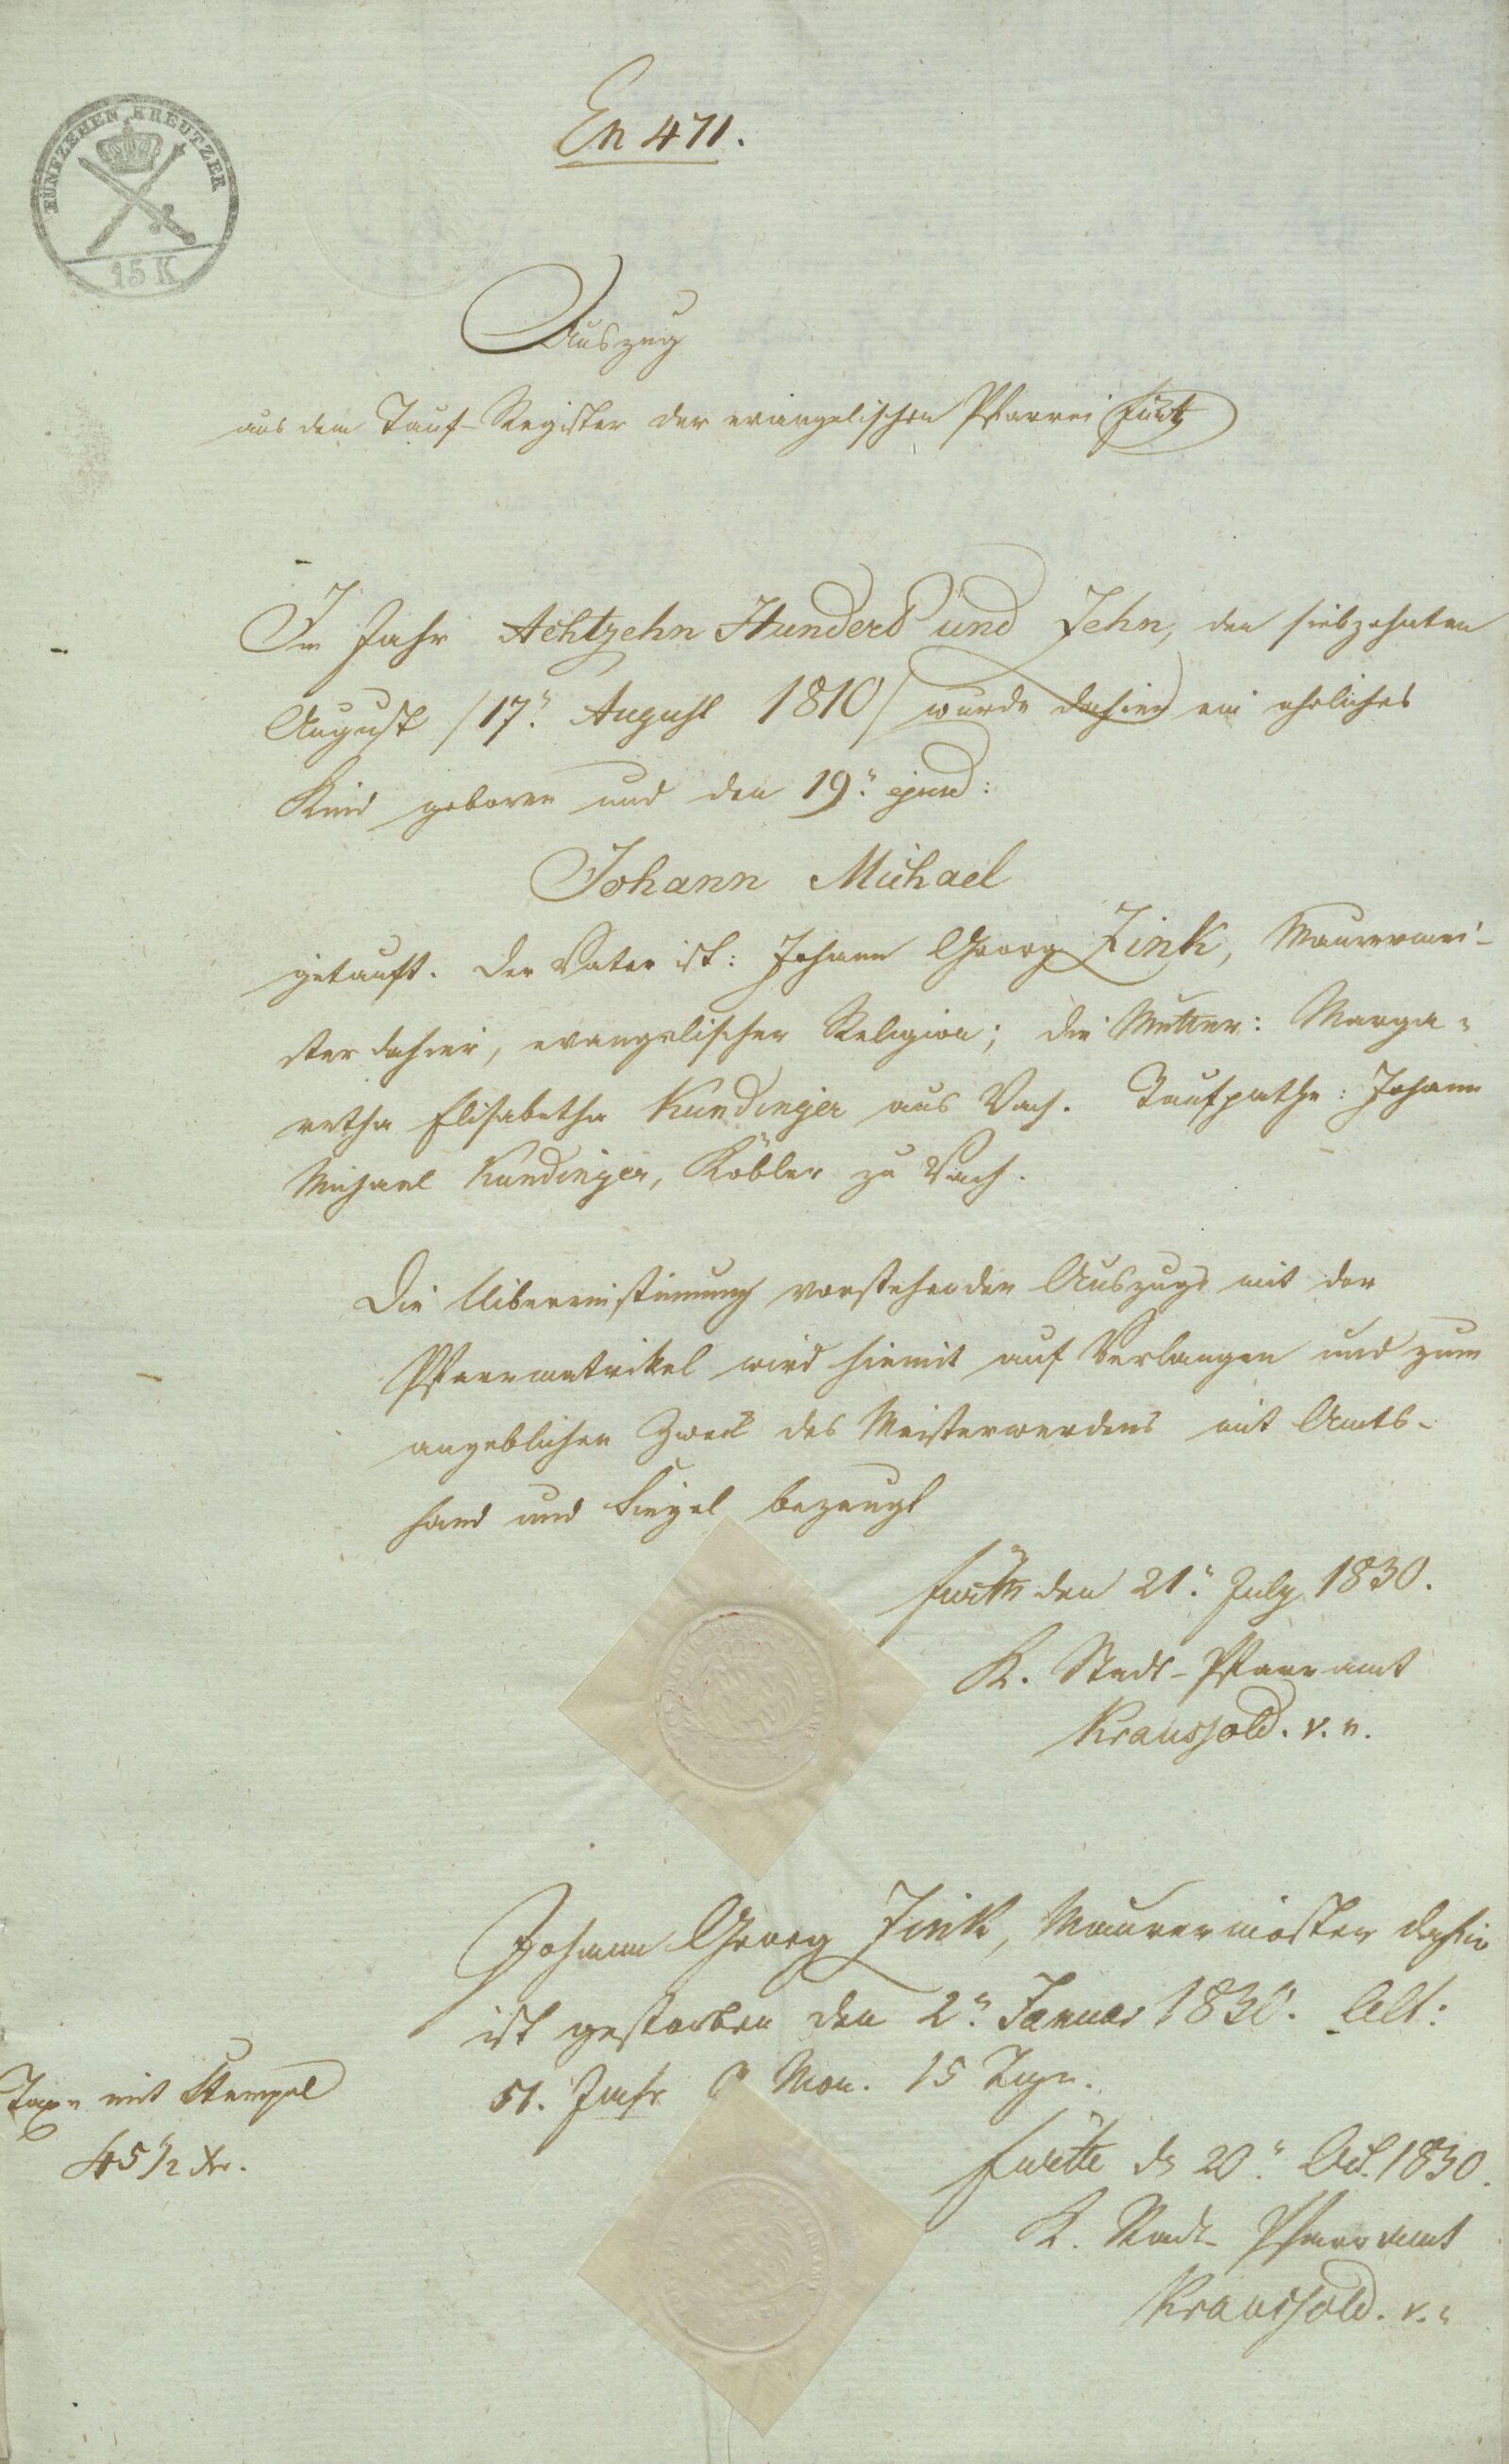 FÜNFZEHEN KREUTZER
15 K
En 471.
Auszug
aus dem Tauf-Register der evangelischen Pfarrei Fürth
Im Jahr Achtzehn Hundert und Zehn, den siebzehnten
August /17n. August 1810/ wurde dahier ein eheliches
Kind geboren und den 19n. ejusd:
Johann Michael
getauft. Der Vater ist: Johann Georg Zink, Maurermei-
ster dahier, evangelischer Religion; die Mutter: Marga-
retha Elisabetha Kundinger aus Vach. Taufpathe: Johann
Michael Kundinger, Köbler zu Vach.
Die Uibereinstimmung vorstehenden Auszugs mit der
Pfarrmatrikel wird hiemit auf Verlangen und zum
angeblichen Zweck des Meisterwerdens mit Amts-
hand und Siegel bezeugt
Fürth den 21n. July 1830.
K. Stadt-Pfarramt
Kraussold. v. n.
Johann Georg Zink, Maurermeister dahier
ist gestorben den 2n. Januar 1830. Alt:
51. Jahr Mon. 15 Tage.
Taxe mit Stempel
45 1/2 Xr.
Fürth d 20n. Oct. 1830.
K. Stadt-Pfarramt
Kraussold. v. n.